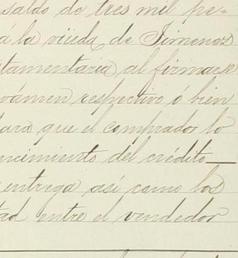 saldo de tres mil pe-
a la viuda de Jimenez
tamentaria al firmarse
vámen respectivo ó bien
para que el comprador lo
ncimiento del crédito
entrega así como los
tad entre el vendedor